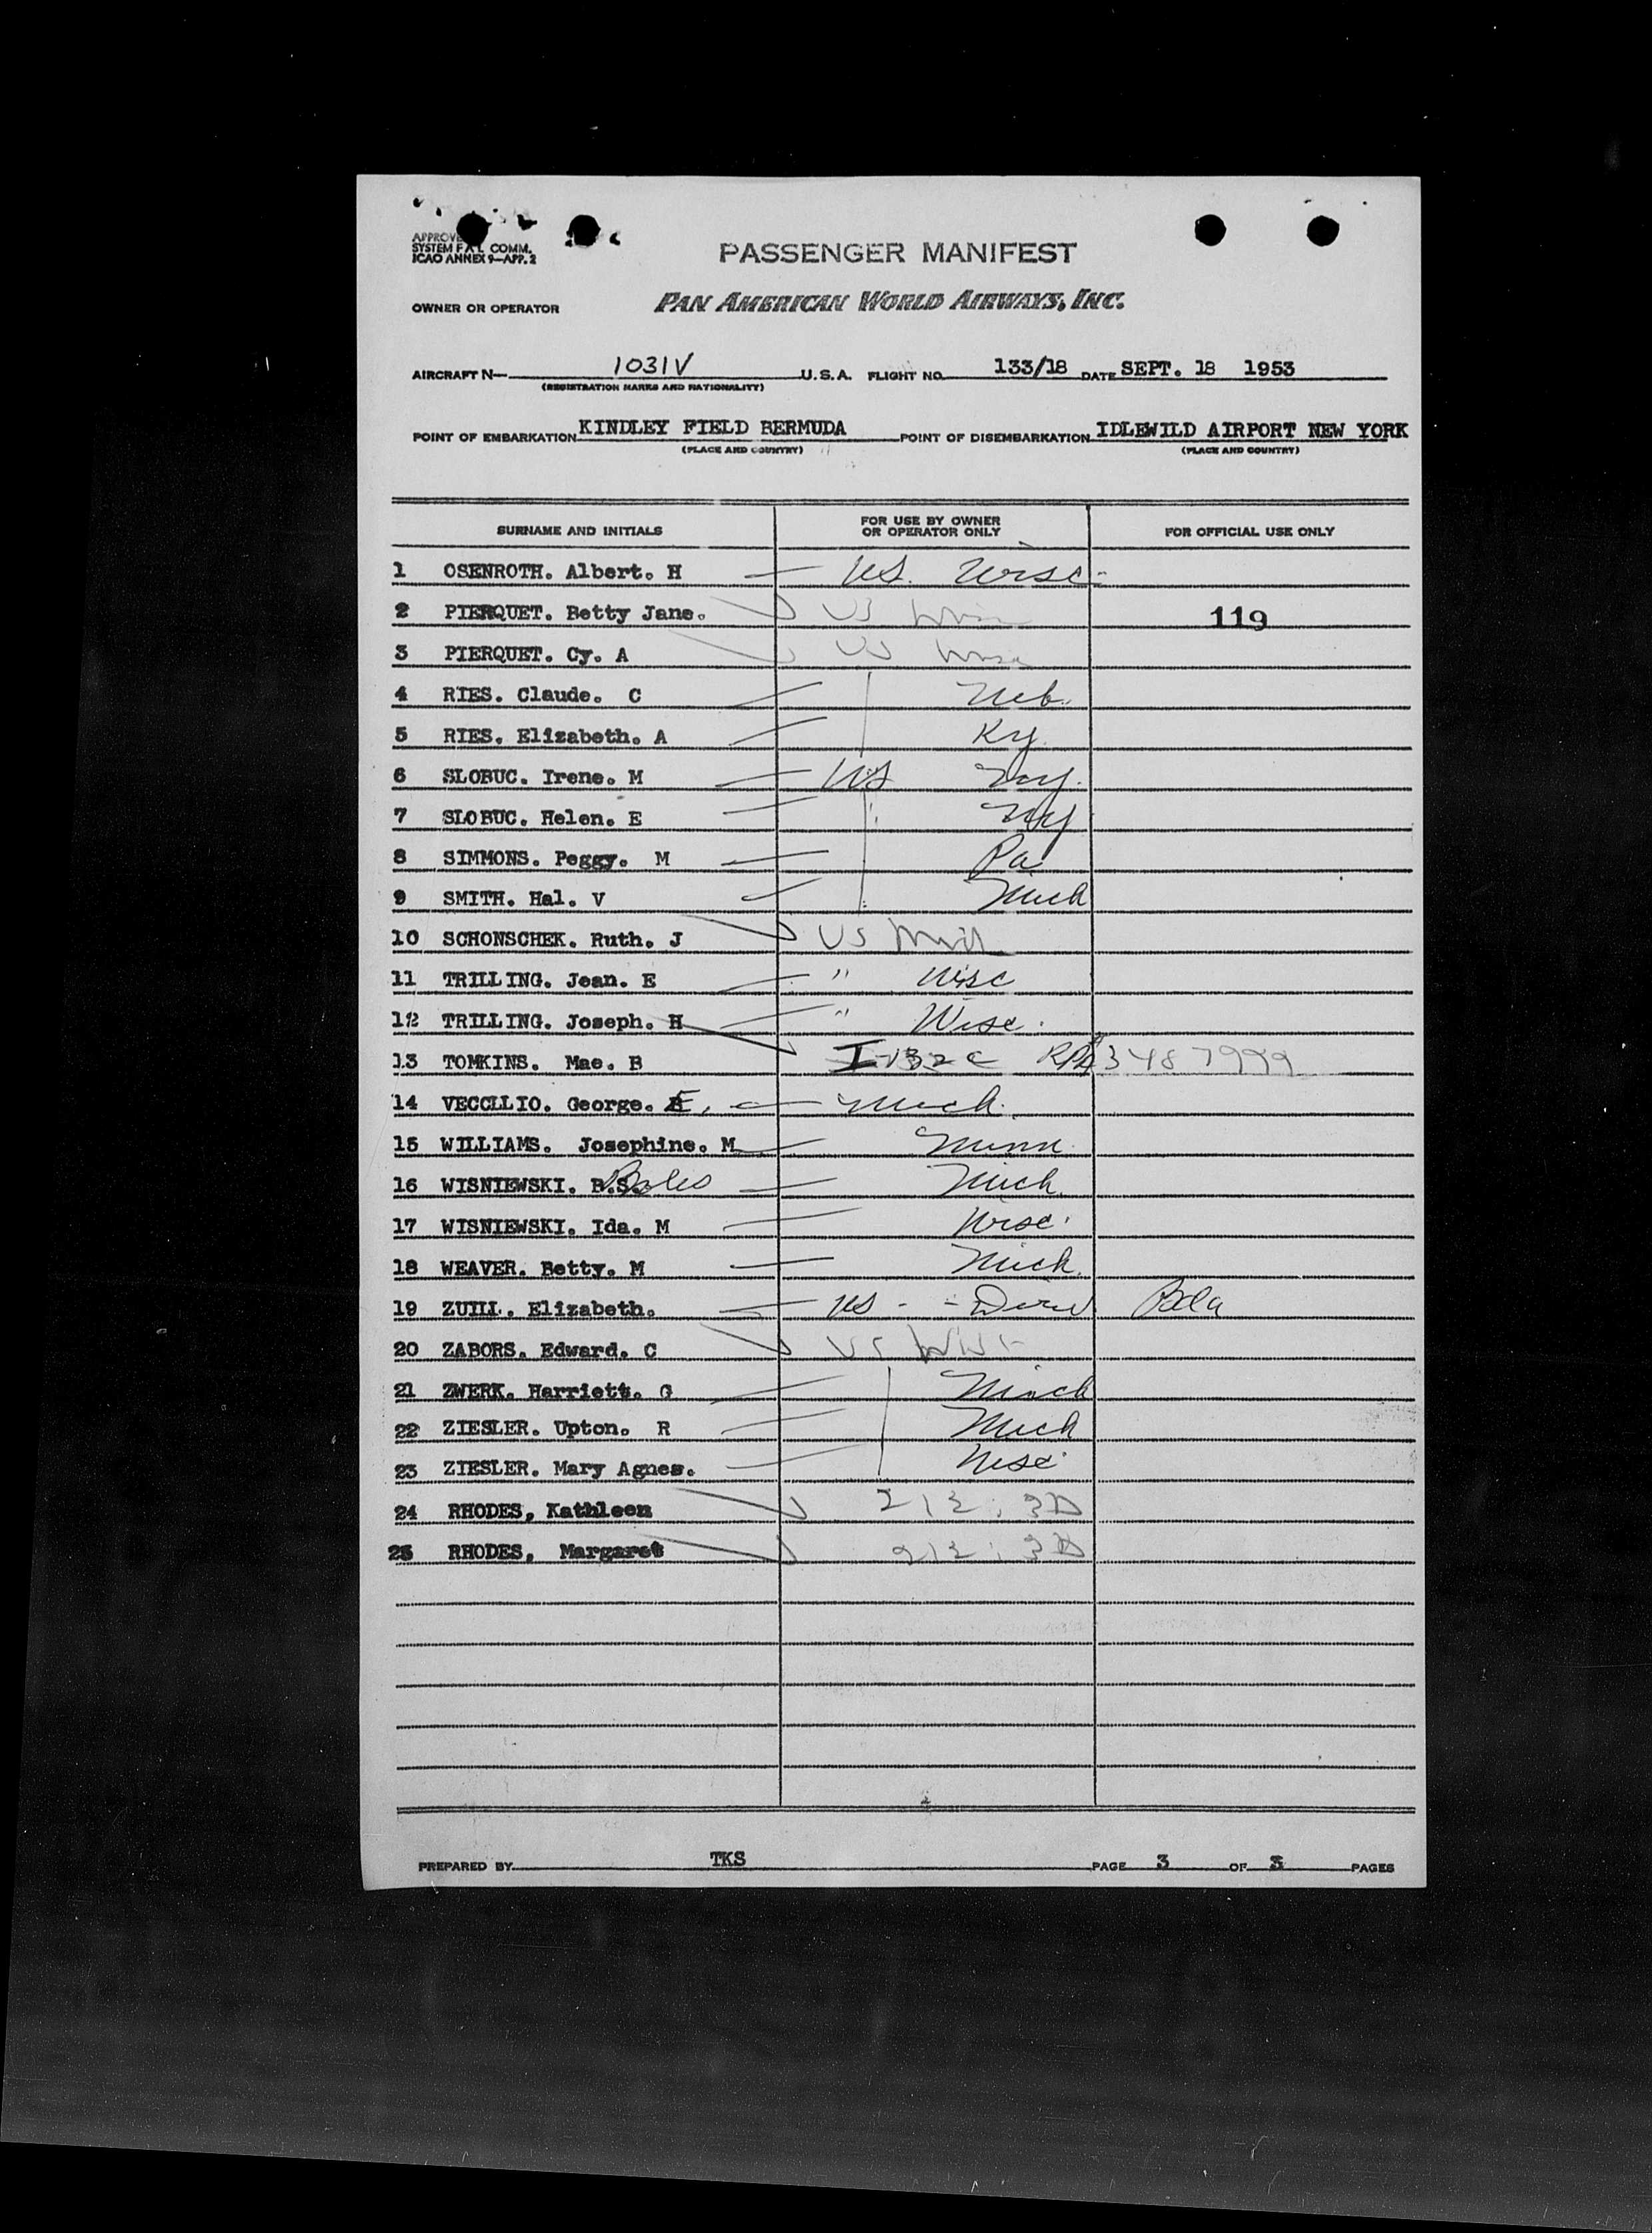 APPROVE
SYSTEM FAL COMM.
ICAO ANNEX 9—APP. 2
PASSENGER MANIFEST
OWNER OR OPERATOR PAN AMERICAN WORLD AIRWAYS, INC.
AIRCRAFT N— 1031V U.S.A. FLIGHT NO. 133/18 DATE SEPT. 18 1953
(REGISTRATION MARKS AND NATIONALITY)
POINT OF EMBARKATION KINDLEY FIELD BERMUDA POINT OF DISEMBARKATION IDLEWILD AIRPORT NEW YORK
(PLACE AND COUNTRY) (PLACE AND COUNTRY)
SURNAME AND INITIALS FOR USE BY OWNER OR OPERATOR ONLY FOR OFFICIAL USE ONLY
1 OSENROTH. Albert. H — US. Wisc.
2 PIERQUET. Betty Jane. US 119
3 PIERQUET. Cy. A US
4 RIES. Claude. C Neb.
5 RIES. Elizabeth. A Ky.
6 SLOBUC. Irene. M US Ny.
7 SLOBUC. Helen. E Ny
8 SIMMONS. Peggy. M Pa
9 SMITH. Hal. V Mich
10 SCHONSCHEK. Ruth. J US
11 TRILLING. Jean. E " Wisc
12 TRILLING. Joseph. H " Wisc.
13 TOMKINS. Mae. B I-132c 3487999
14 VECCLLIO. George. E, Mich.
15 WILLIAMS. Josephine. M Minn.
16 WISNIEWSKI. B.S. Mich.
17 WISNIEWSKI. Ida. M Wisc.
18 WEAVER. Betty. M Mich.
19 ZUILL. Elizabeth. US - Bda
20 ZABORS. Edward. C US
21 ZWERK. Harriett. G Mich
22 ZIESLER. Upton. R Mich
23 ZIESLER. Mary Agnes. Wisc.
24 RHODES, Kathleen 212; 3D
25 RHODES, Margaret 212; 3D
PREPARED BY TKS PAGE 3 OF 3 PAGES